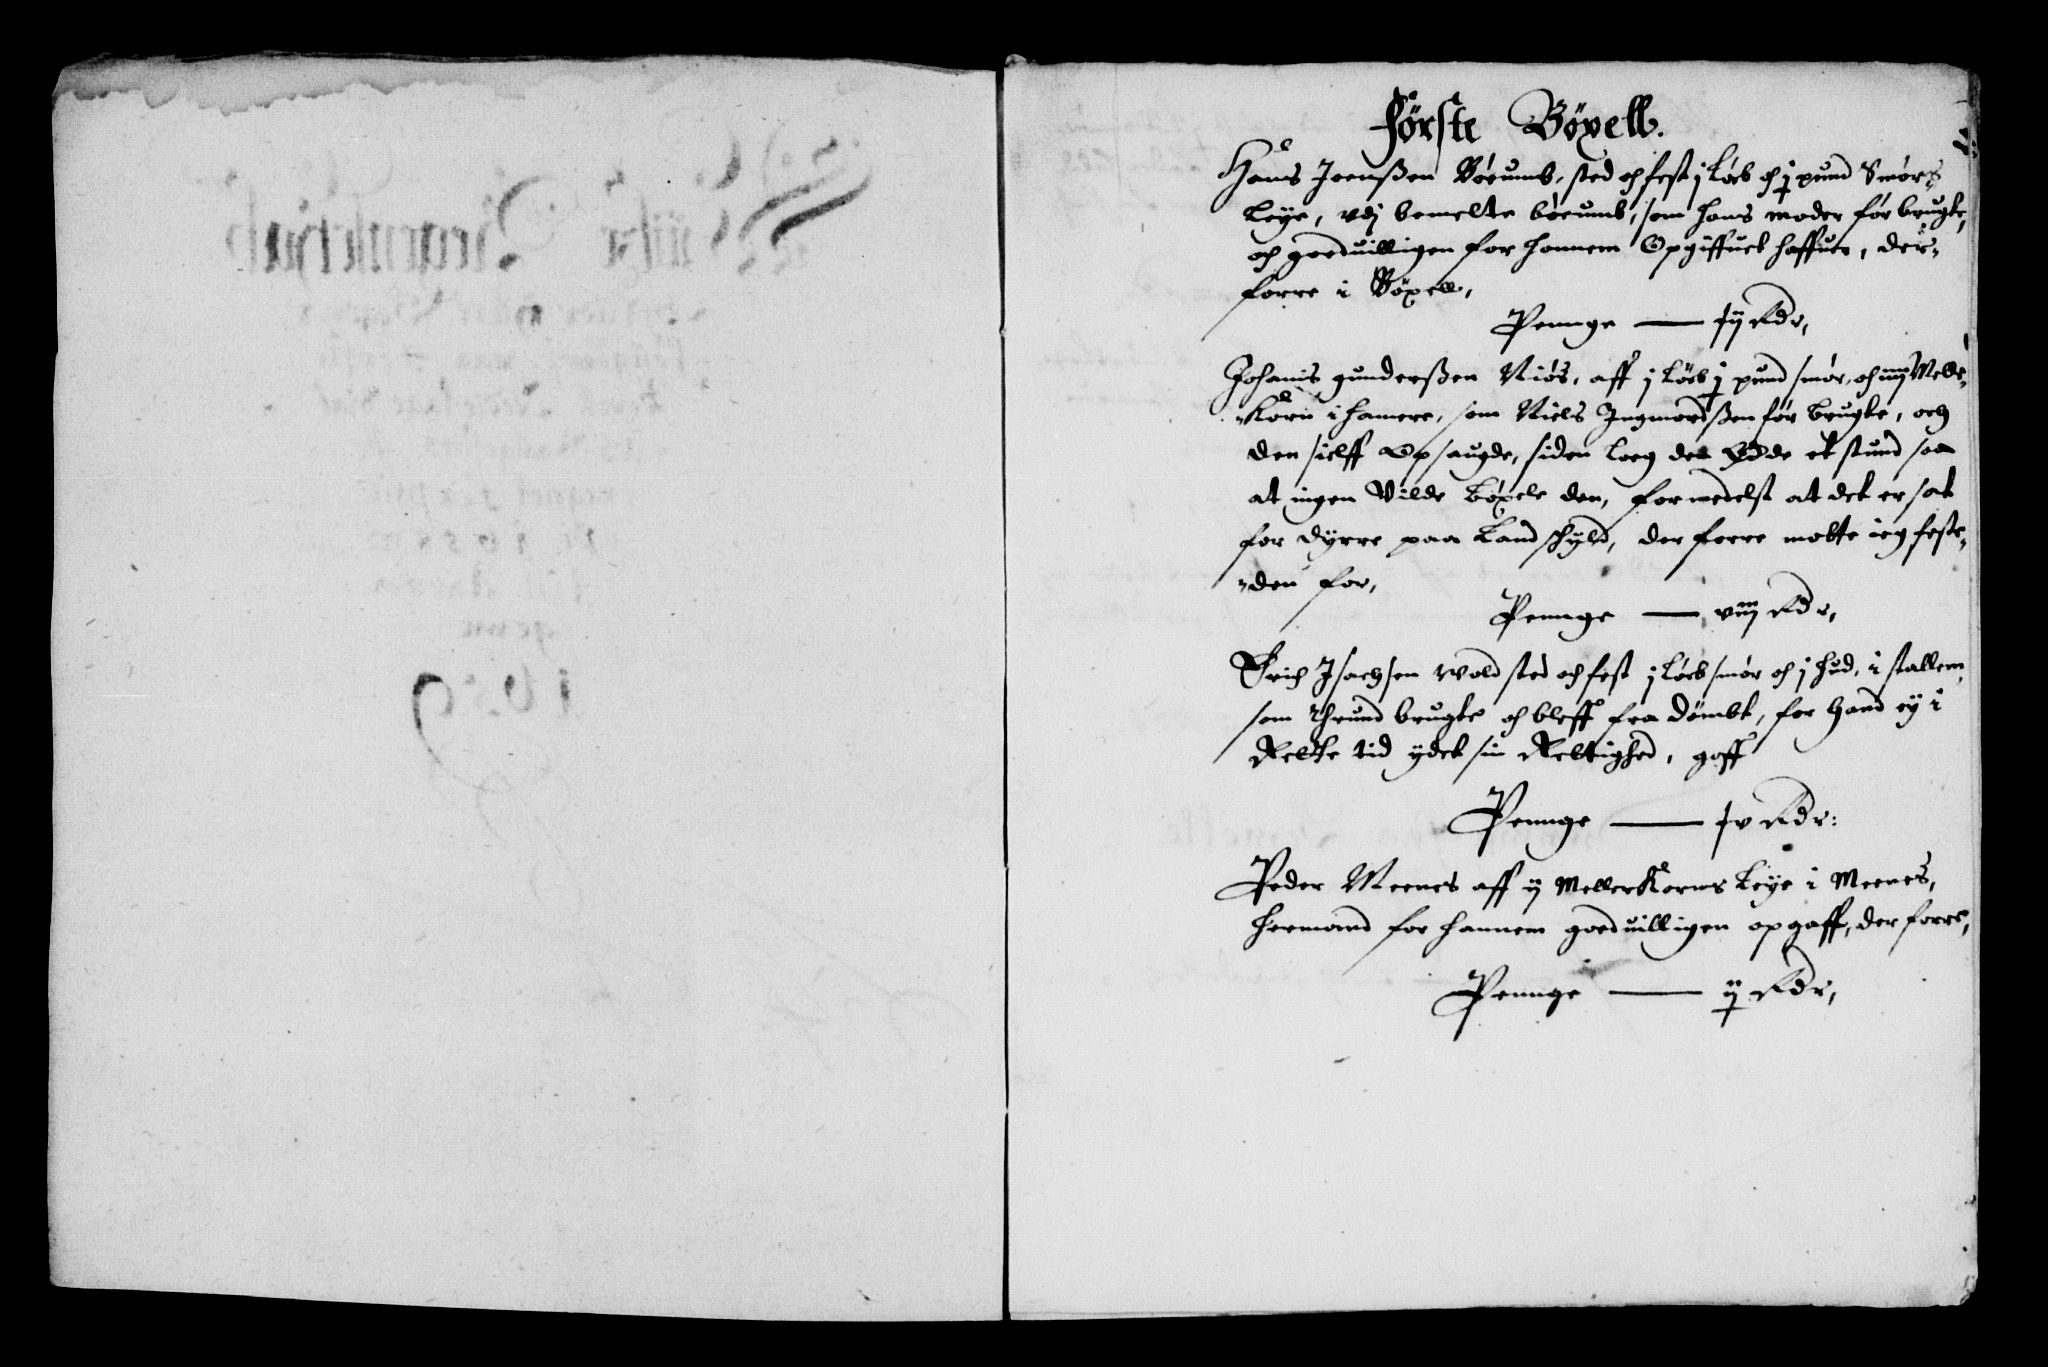 Första Böxell.
Hans Joenßen Börumb, sted och fest j löeb och j pund Smörs
leye, vdj bemelte börumb, som hans moder för brugte,
och goeduilligen for hannem Opgiffuet haffuer, der-
forre i Böxell,
Pennge — Jij Rdr,
Johanis gunderßen Niös, aff j löeb j pund smör, och iiij Meller
Korn i hamere, som Niels Ingmordßen för brugte, och
den sielff Opsaugde, siden loeg det Ödde et stund saa
at ingen Vilde böxele den, formedelst at det er sat
for dyrre paa Landschyld, der forre motte ieg feste
den for,
Pennge — viij Rdr,
Erich Isachsen Wold sted och fest j löeb smör och j hud, i stallem,
som Thrund brugte och bleff fra dömbt, for hand ey i
Rette tid ydet sin Rettighed, gaff
Pennge — Jv Rdr:
Peder Meenes aff ij Mellerkorns leye i Meenes,
hermand for hannem goeduilligen opgaff, der forre,
Pennge — ij Rdr,
1659